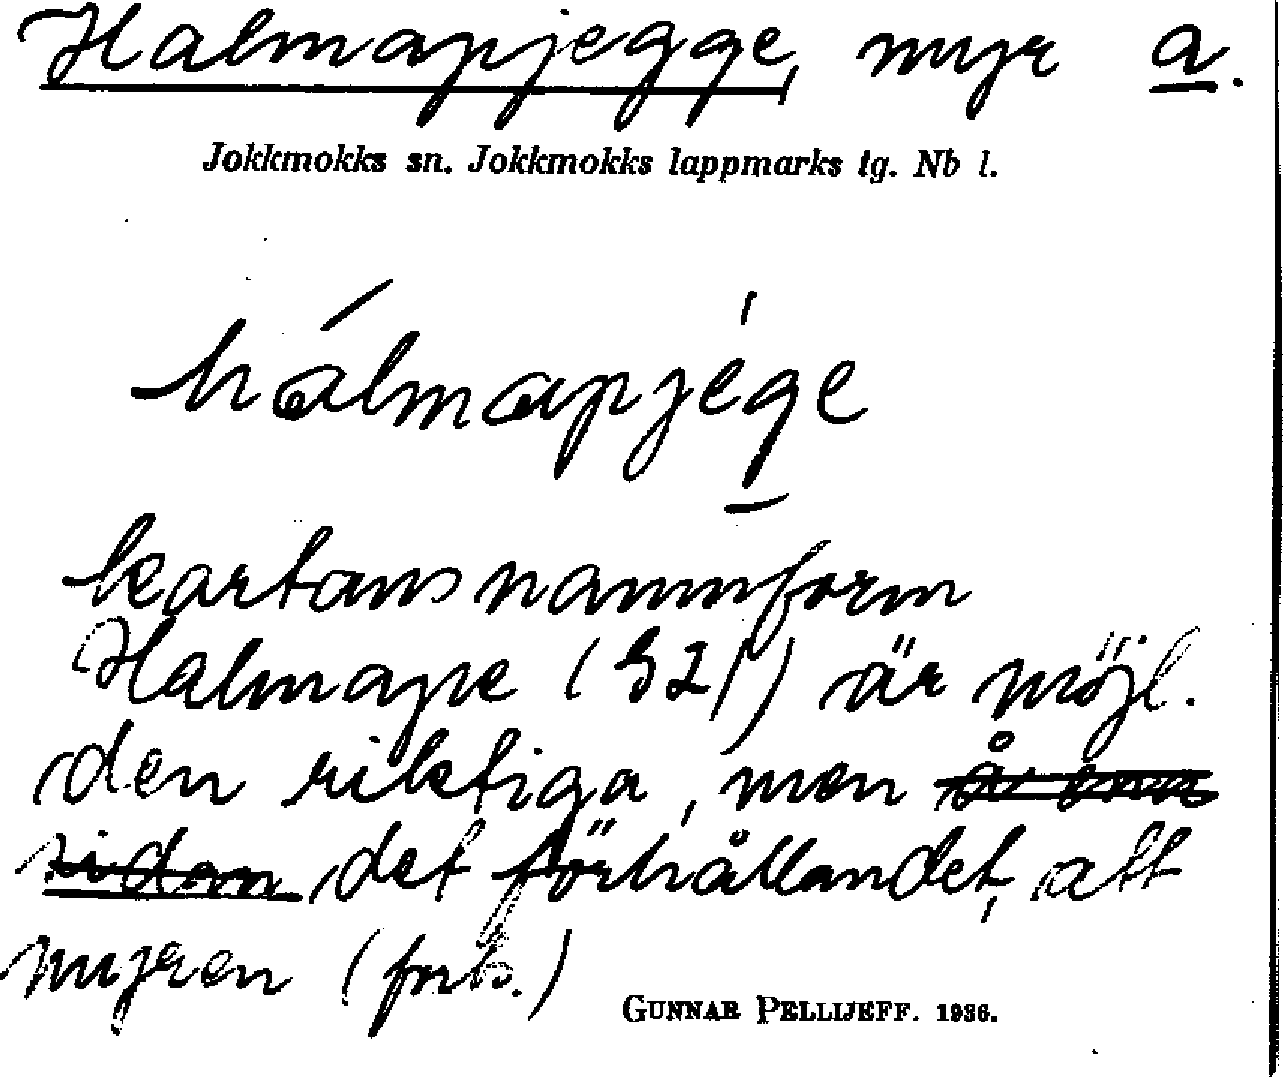 Halmapjegge, myr a.
Jokkmokks sn. Jokkmokks lappmarks tg. Nb l.
hálmapjége
kartans namnform
Halmape (G2/) är möjl.
den riktiga, men å ena
sidan det förhållandet, att
myren (forts.)
GUNNAR PELLIJEFF. 1936.